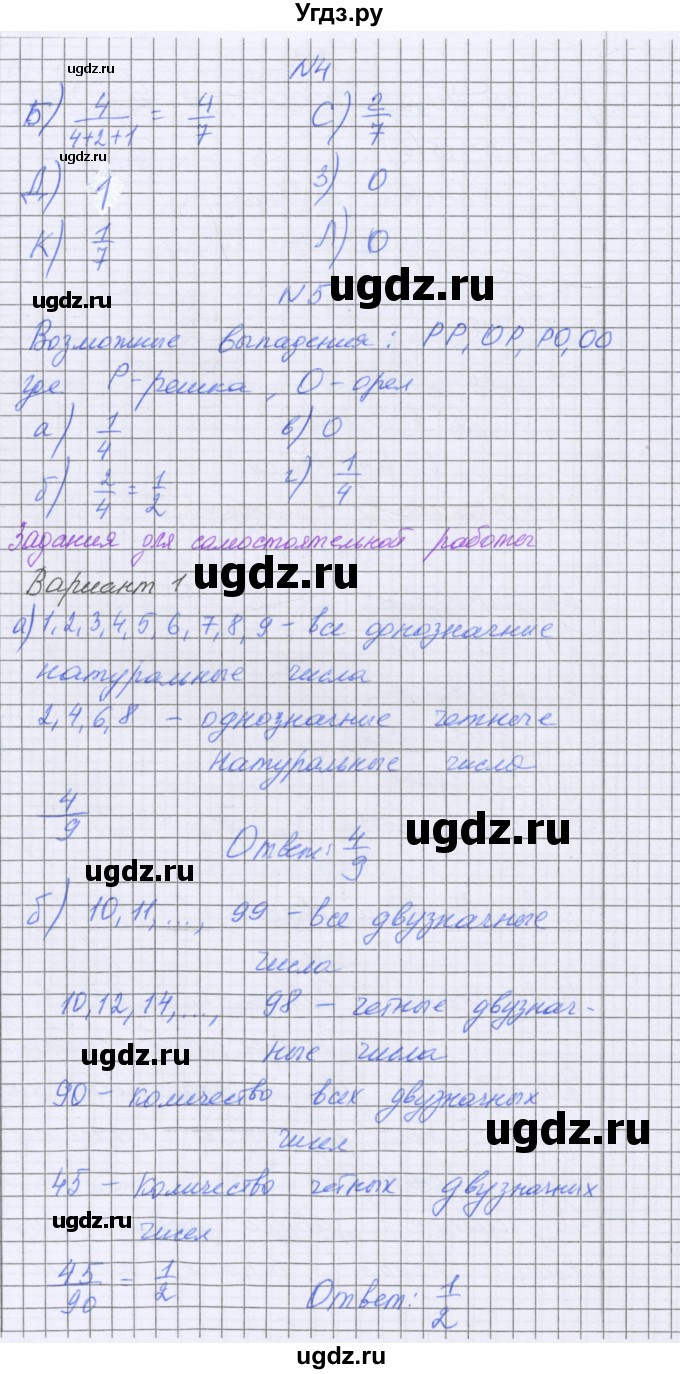 Угдз.ру
ugdz.ru
N4
Б) 4/(4+2+1) = 4/7 С) 2/7
ugdz.ru
Д) 1 З) 0
К) 1/7 Л) 0
ugdz.ru
ugdz.ru
N5
Возможные выпадения: РР, ОР, РО, ОО
где Р-решка, О-орел
а) 1/4 в) 0
б) 2/4 = 1/2 г) 1/4
Задания для самостоятельной работы
Вариант 1
ugdz.ru
а) 1, 2, 3, 4, 5, 6, 7, 8, 9 - все однозначные
натуральные числа
2, 4, 6, 8 - однозначные четные
натуральные числа
4/9
Ответ: 4/9
ugdz.ru
ugdz.ru
б) 10, 11, ..., 99 - все двузначные
числа
10, 12, 14, ..., 98 - четные двузнач-
ные числа
ugdz.ru
90 - количество всех двузначных
чисел
ugdz.ru
45 - количество четных двузначных
чисел
ugdz.ru
45/90 = 1/2 Ответ: 1/2
ugdz.ru